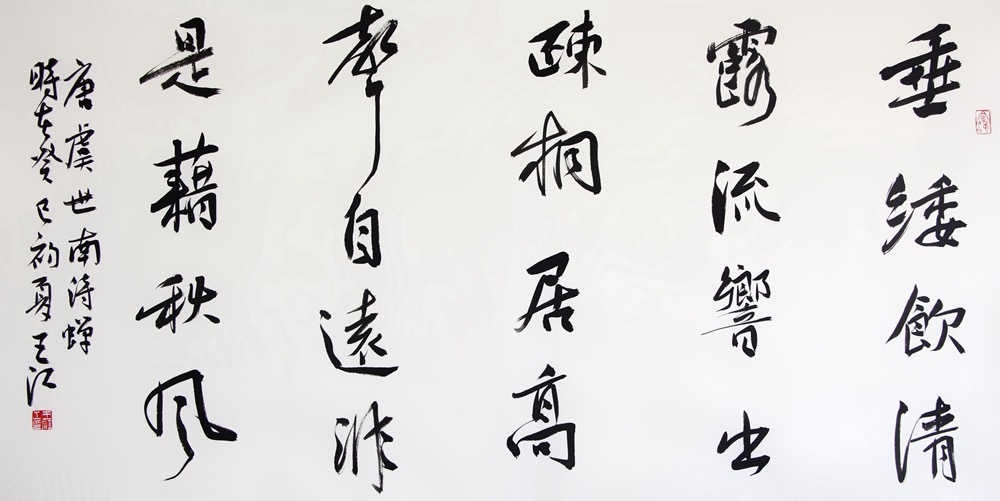 垂緌飲清
露流響出
疎桐居高
聲自遠非
是藉秋风
唐虞世南诗蝉
時在癸巳初夏王江